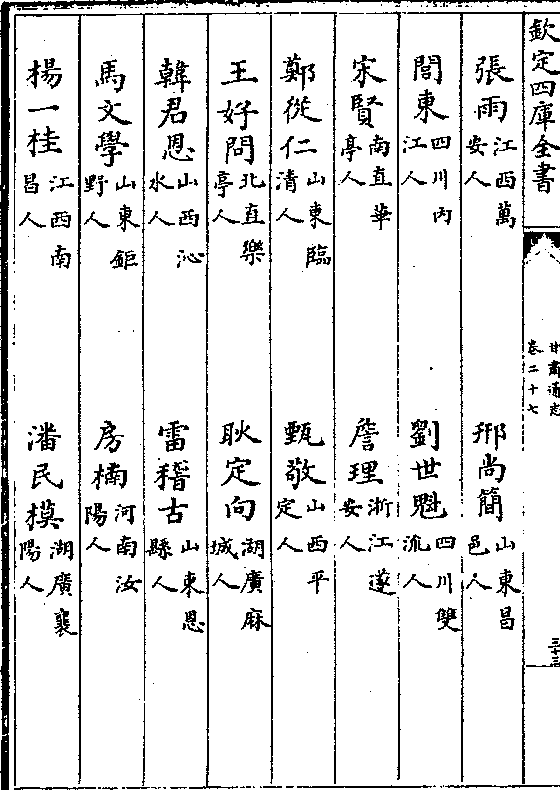 欽定四庫全書
甘肅通志
卷二十七
三十三
張雨江西萬安人
邢尚簡山東昌邑人
閻東四川內江人
劉世魁四川雙流人
宋賢南直華亭人
詹理浙江遂安人
鄭從仁山東臨清人
甄敬山西平定人
王好問北直樂亭人
耿定向湖廣麻城人
韓君恩山西沁水人
雷稽古山東恩縣人
馬文學山東鉅野人
房楠河南汝陽人
楊一桂江西南昌人
潘民模湖廣襄陽人